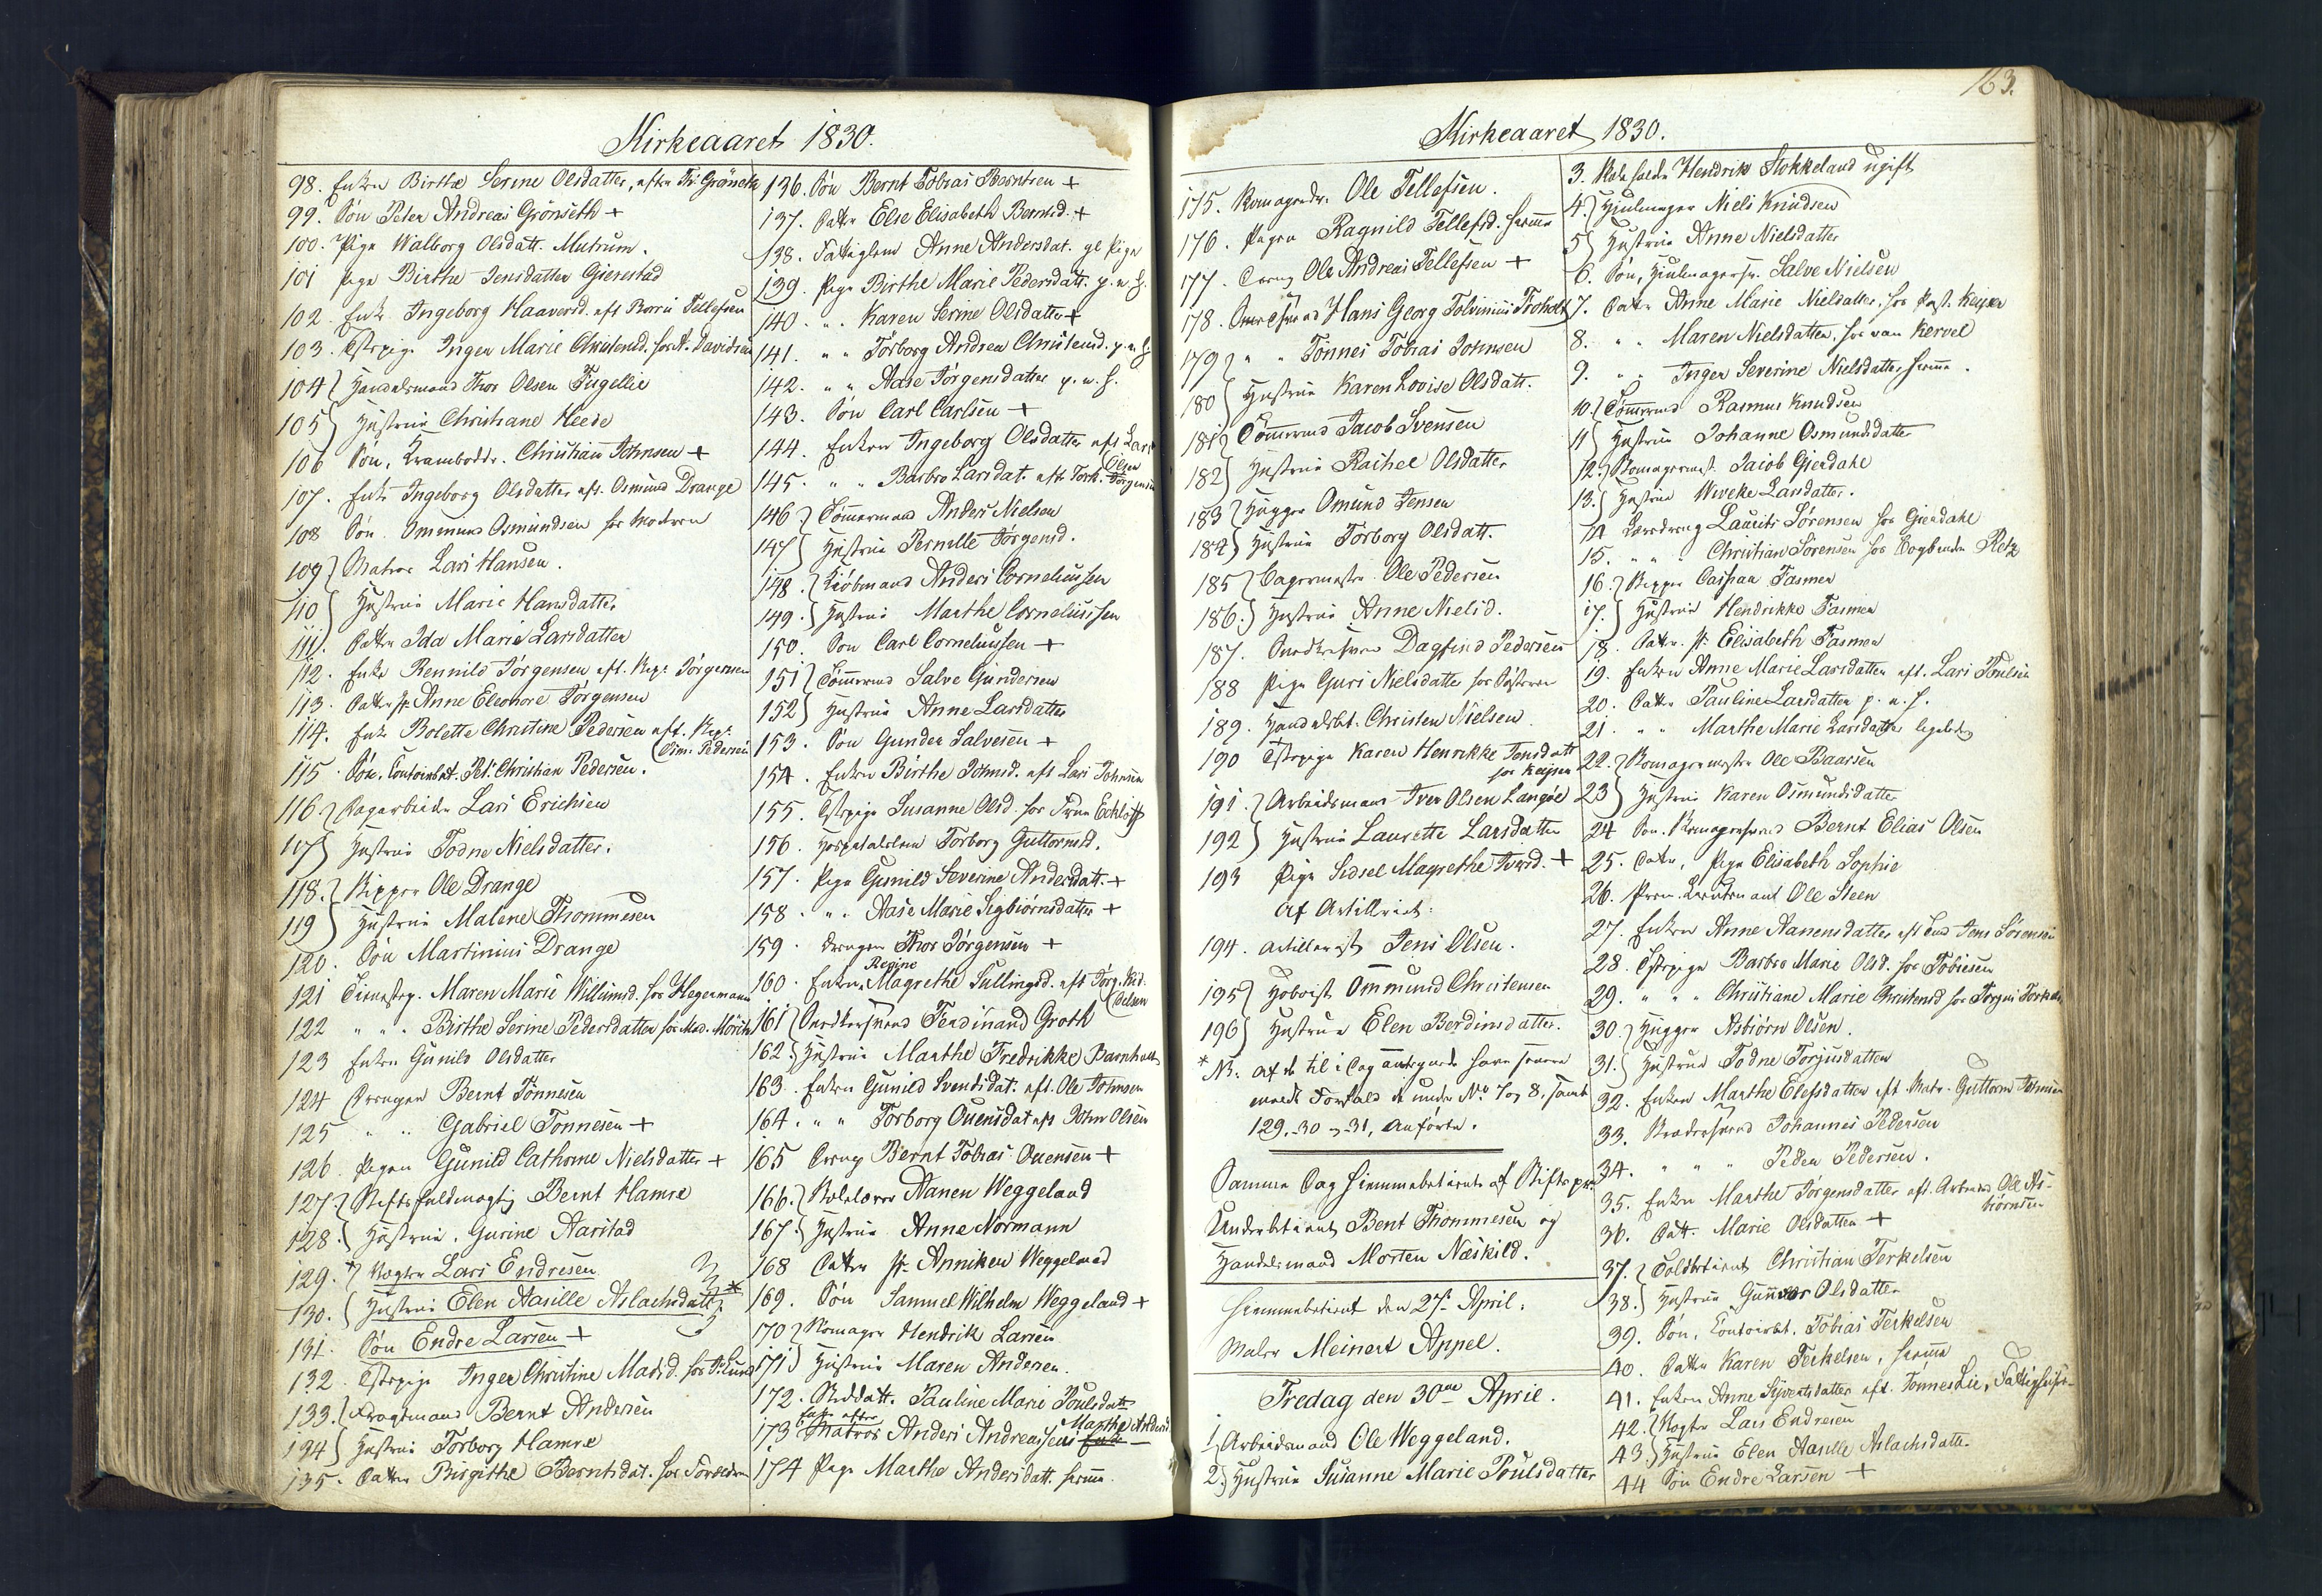 Kirkeaaret 1830.
98. Enken Birthe Serine Olsdatter, efter Th. Grönseth
99. Sön Peter Andreas Grönseth +
100. Pige Walborg Olsdatt. Mutrum.
101 Pige Birthe Jensdatter Gierestad
102. Enke Ingeborg Haaversd. eft Tellefsen
103. Tstpige Inger Marie Christensd. hos Davidsen
104 Handelsmand Thor Olsen Fugellie
105 Hustrue Christiane Heede
106 Sön, Krambodk. Christian Johnsen +
107. Enke Ingeborg Olsdatter eft. Osmund Drange
108 Sön Ommund Osmundsen hos Moderen
109 Matros Lars Hansen.
110 Hustrue Marie Hansdatter
111. Datter Ida Marie Larsdatter
112. Enke Rennild Jörgensen eft. Jörgensen
113. Datter Jfr Anne Eleonore Jörgensen
114. Enke Bolette Christine Pedersen eft. Skip.
Sim. Pedersen
115 Sön, Contoirbet. Pet. Christian Pedersen.
116. Dagarbeider Lars Erichsen
117 Hustrue Todne Nielsdatter.
118. Skipper Ole Drange
119 Hustrue Malene Thommesen
120. Sön Martinius Drange
121 Tienestep. Maren Marie Willumsd. hos Hegermann
122 " " Birthe Serine Pedersdatter hos Mad. Mörch
123 Enken Gunild Olsdatter
124 Drengen Bernt Tönnesen
125 " " Gabriel Tönnesen +
126. Pigen Gunild Cathrine Nielsdatter +
127. Stiftsfuldmægtig Bernt Hamre
128. Hustrue. Gurine Aarstad
129.* Vægter Lars Endresen
130. Hustrue Elen Aasille Aslachsdatt. *
131. Sön Endre Larsen +
132. Tstpige Inger Christine Madsd. hos Lund
133. Fragtmand Bernt Andersen
134 Hustrue Torborg Hamre
135. Datter Birgithe Berntsdat. hos Forældrene
136. Sön Bernt Tobias Berntsen +
137. Datter Else Elisabeth Berntsd. +
138. Fattiglem Anne Andersdat. gl Pige
139. Pige Birthe Marie Pedersdatt. p. u. h.
140. " Karen Serine Olsdatter +
141. " " Torborg Andrea Christensd. p. u. h
142. " " Aase Jörgensdatter p. u. h.
143. Sön Carl Carlsen +
144. Enken Ingeborg Olsdatter eft Lars
Olsen
145. " " Barbro Larsdat. eft Tork. Jörgensen
146 Tömmermand Anders Nielsen
147 Hustrue Pernille Jörgensd.
148. Kiöbmand Anders Corneliussen
149. Hustrue Marthe Corneliussen
150. Sön Carl Corneliussen +
151 Tömmermd Salve Gundersen
152 Hustrue Anne Larsdatter
153. Sön Gunder Salvesen +
154. Enken Birthe Johnsd. eft Lars Johnsen
155. Tstpige Susanne Olsd. hos Frue Eckloff
156. Hospitalslem Torborg Guttormsd.
157. Pige Gunild Severine Andersdatt. +
158. " " Aase Marie Sigbiörnsdatter +
159. Drengen Thor Jörgensen +
Regine
160. Enken Magrethe Sullingsd. eft Jörg. Nic.
Oelsen
161 Snedkersvend Ferdinand Groth
162. Hustrue Marthe Fredrikke Barnholdt
163. Enken Gunild Svendsdat. eft. Ole Johnsen
164. " " Torborg Ouensdat eft John Olsen
165 Dreng Bernt Tobias Ouensen +
166. Skolelærer Aanen Weggeland
167. Hustrue Anne Normann
168 Datter Jfr Anniken Weggeland
169. Sön Samuel Wilhelm Weggeland +
170 Skomager Hendrik Larsen
171 Hustrue Maren Andersen.
172. Steddatt. Pauline Marie Poulsdatt
Enke efter Marthe
173 Matros Anders Andreassens Enke
174 Pige Marthe Andersdatt. hiemme.
163.
Kirkeaaret 1830.
175. Skomagerdr. Ole Tellefsen.
176. Pigen Ragnild Tellefsd. hiemme
177. Dreng Ole Andreas Tellefsen +
178. Hans Georg Tolvinius Troholt
179 " " Tönnes Tobias Johnsen
180 Hustrue Karen Lovise Olsdatt.
181 Tömmermd Jacob Svensen
182 Hustrue Rachel Olsdatter
183 Hugger Omund Jensen
184 Hustrue Torborg Olsdatt.
185 Bagermester Ole Pedersen
186. Hustrue Anne Nielsd.
187. Snedkersvend Dagfind Pedersen
188 Pige Guri Nielsdatter hos Söstren
189. Handelsbt. Christen Nielsen.
190 Tstpige Karen Henrikke Tonsdatt
hos Keyser
191. Arbeidsmand Iver Olsen Langöe
192 Hustrue Laurette Larsdatter
193 Pige Sidsel Magrethe Iversd. +
Af Artilleriet:
194. Artillerist Jens Olsen.
195 Hoboist Ommund Christensen
196 Hustrue Elen Berdinsdatter.
* NB. af de til i Dag antegnede have senere
meldt Forfald de under No 7 og 8, samt
129. 30 - 31, anförte.
Samme Dag hiemmebetient af Stiftspr.
Underbetient Bent Thommesen og
Handelsmand Morten Neskild.
Hiemmebetient den 27de April:
Maler Meinert Appel.
Fredag den 30te April.
1. Arbeidsmand Ole Weggeland.
2. Hustrue Susanne Marie Poulsdatter
3. Hendrik Stokkeland ugift
4. Hiulmager Niels Knudsen
5 Hustrue Anne Nielsdatter
6. Sön, Hiulmagersv. Salve Nielsen
7. Datter Anne Marie Nielsdatter, hos Past. Keyser
8. " " Maren Nielsdatter, hos van Kervel
9. " " Inger Severine Nielsdatter hiemme.
10. Tömmermd Rasmus Knudsen
11 Hustrue Johanne Osmundsdatter
12. Skomagermest. Jacob Gierdahl
13. Hustrue Wiveke Larsdatter.
14 Læredreng Laurits Sörensen hos Gierdahl
15. " " Christian Sörensen hos Bogbinder Retz
16. Skipper Caspar Fasmer
17. Hustrue Hendrikke Fasmer
18. Datter Jfr Elisabeth Fasmer
19. Enken Anne Marie Larsdatter eft. Lars Poulsen
20. Datter Pauline Larsdatter p. u. h.
21. " " Marthe Marie Larsdatter ligeledes
22. Skomagermester Ole Baarsen
23 Hustrue Karen Osmundsdatter
24 Sön. Skomagersvend Bernt Elias Olsen
25. Datter, Pige Elisabeth Sophie
26. Prem. Lieutenant Ole Steen
27. Enken Anne Aanensdatter eft Jens Sörensen
28. Tstpige Barbro Marie Olsd. hos Tobiesen
29. " " " Christiane Marie Christensd hos Jörgen
30. Hugger Asbiörn Olsen.
31. Hustrue Todne Torjusdatter
32. Enken Marthe Elefsdatter eft Matr. Guttorm Johnsen
33. Johannes Pedersen
34. " " " Peder Pedersen.
35. Enken Marthe Jörgensdatter eft. Arbmd Ole As-
biörnsen
36. Datt. Marie Olsdatter +
37. Toldbetient Christian Terkelsen
38. Hustrue Gunnor Olsdatter
39. Sön, Contoirbt. Tobias Terkelsen
40. Datter Karen Terkelsen, hiemme
41. Enken Anne Syvertsdatter eft. Tönnes Lie,
42. Vægter Lars Endresen
43. Hustrue Elen Aasille Aslachsdatter
44 Sön Endre Larsen +